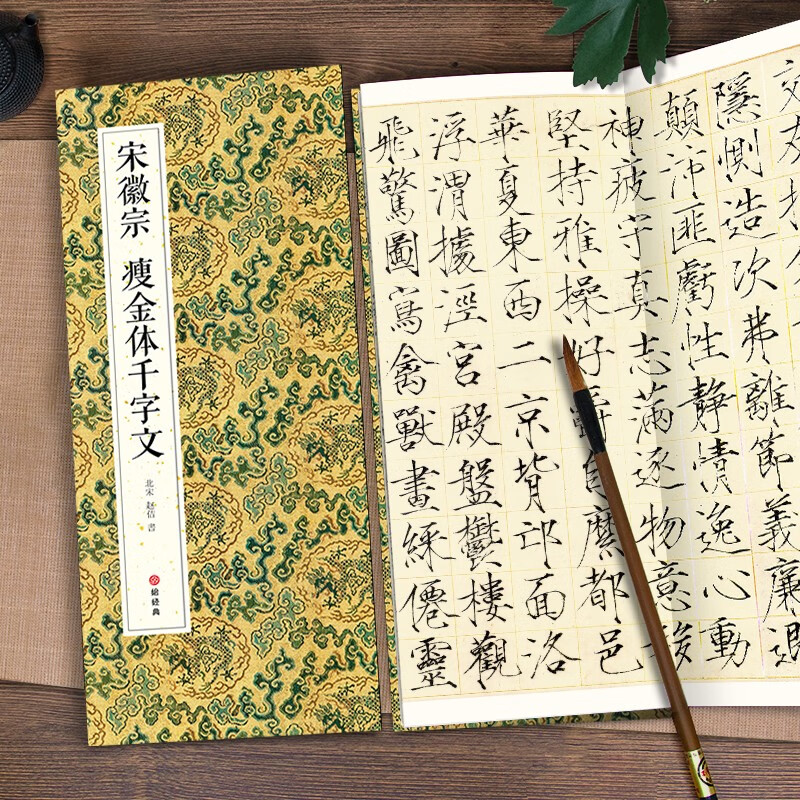 宋徽宗 瘦金体千字文
北宋 赵佶 书
绘经典
交友
隱惻造次弗離節義廉退
顛沛匪虧性靜情逸心動
神疲守真志滿逐物意移
堅持雅操好爵自縻都邑
華夏東西二京背邙面洛
浮渭據涇宮殿盤鬱樓觀
飛驚圖寫禽獸畫綵僊靈